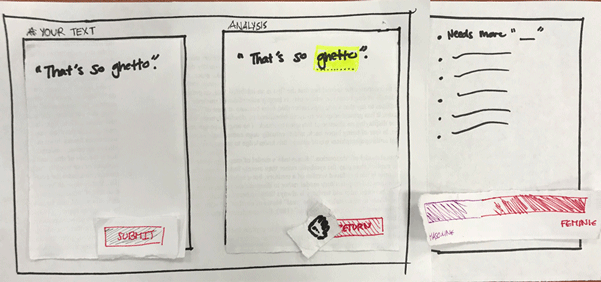 # YOUR TEXT
"That's so ghetto".
SUBMIT
ANALYSIS
"That's so ghetto".
ETURN
• Needs more "__"
FEMINIE